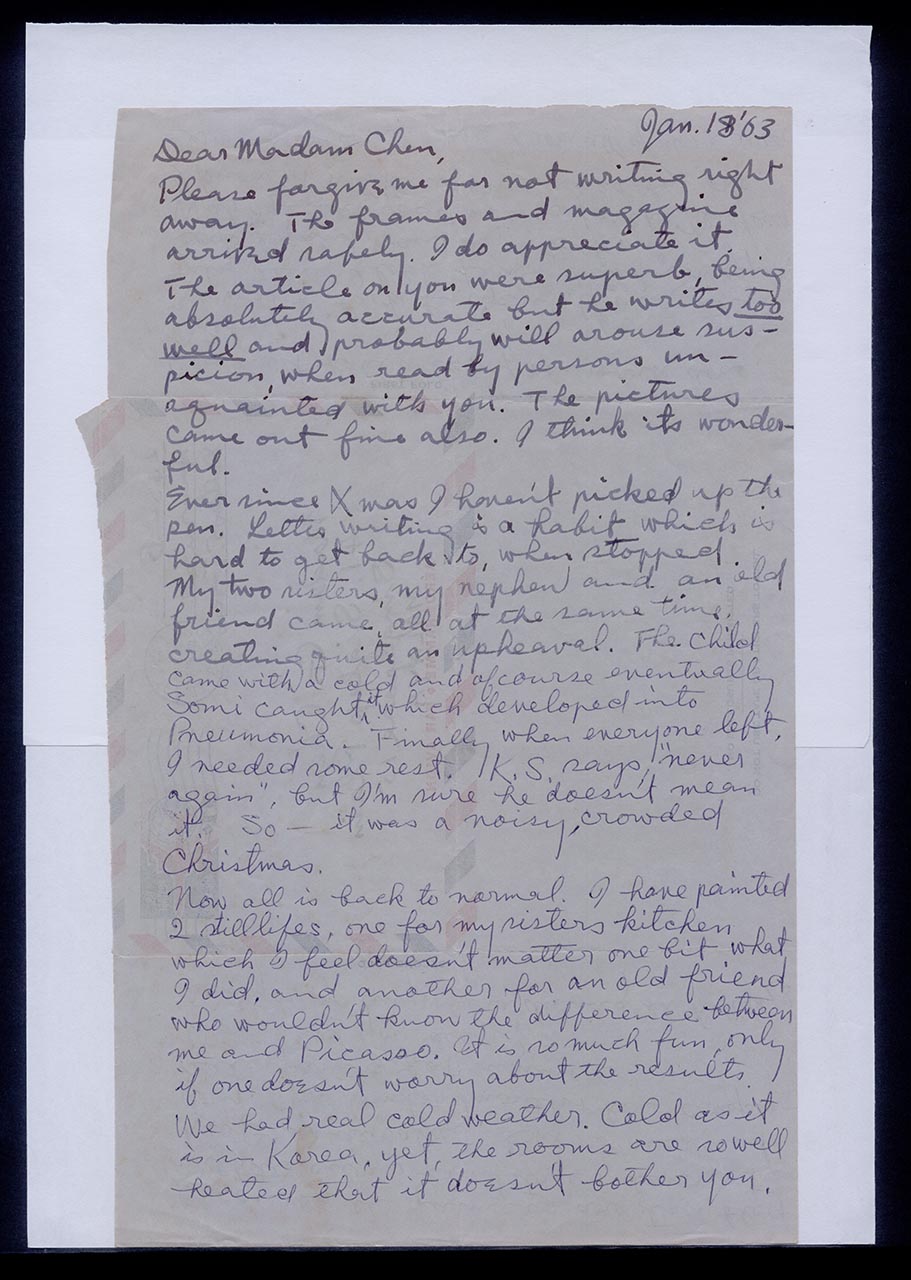 Jan. 18 '63
Dear Madam Chen,
Please forgive me for not writing right
away. The frames and magazine
arrived safely. I do appreciate it.
The article on you were superb, being
absolutely accurate but he writes too
well and probably will arouse sus-
picion, when read by persons un-
aquainted with you. The pictures
came out fine also. I think its wonder-
ful.
Ever since Xmas I haven't picked up the
pen. Letter writing is a habit which is
hard to get back to, when stopped.
My two sisters, my nephew and an old
friend came, all at the same time.
creating quite an upheaval. The child
came with a cold and ofcourse eventually
Somi caught it which developed into
Pneumonia. Finally when everyone left,
I needed some rest. K.S. says, "never
again", but I'm sure he doesn't mean
it. So — it was a noisy, crowded
Christmas.
Now all is back to normal. I have painted
2 still lifes, one for my sisters kitchen
which I feel doesn't matter one bit what
I did, and another for an old friend
who wouldn't know the difference between
me and Picasso. It is so much fun, only
if one doesn't worry about the results.
We had real cold weather. Cold as it
is in Korea, yet, the rooms are so well
heated that it doesn't bother you.